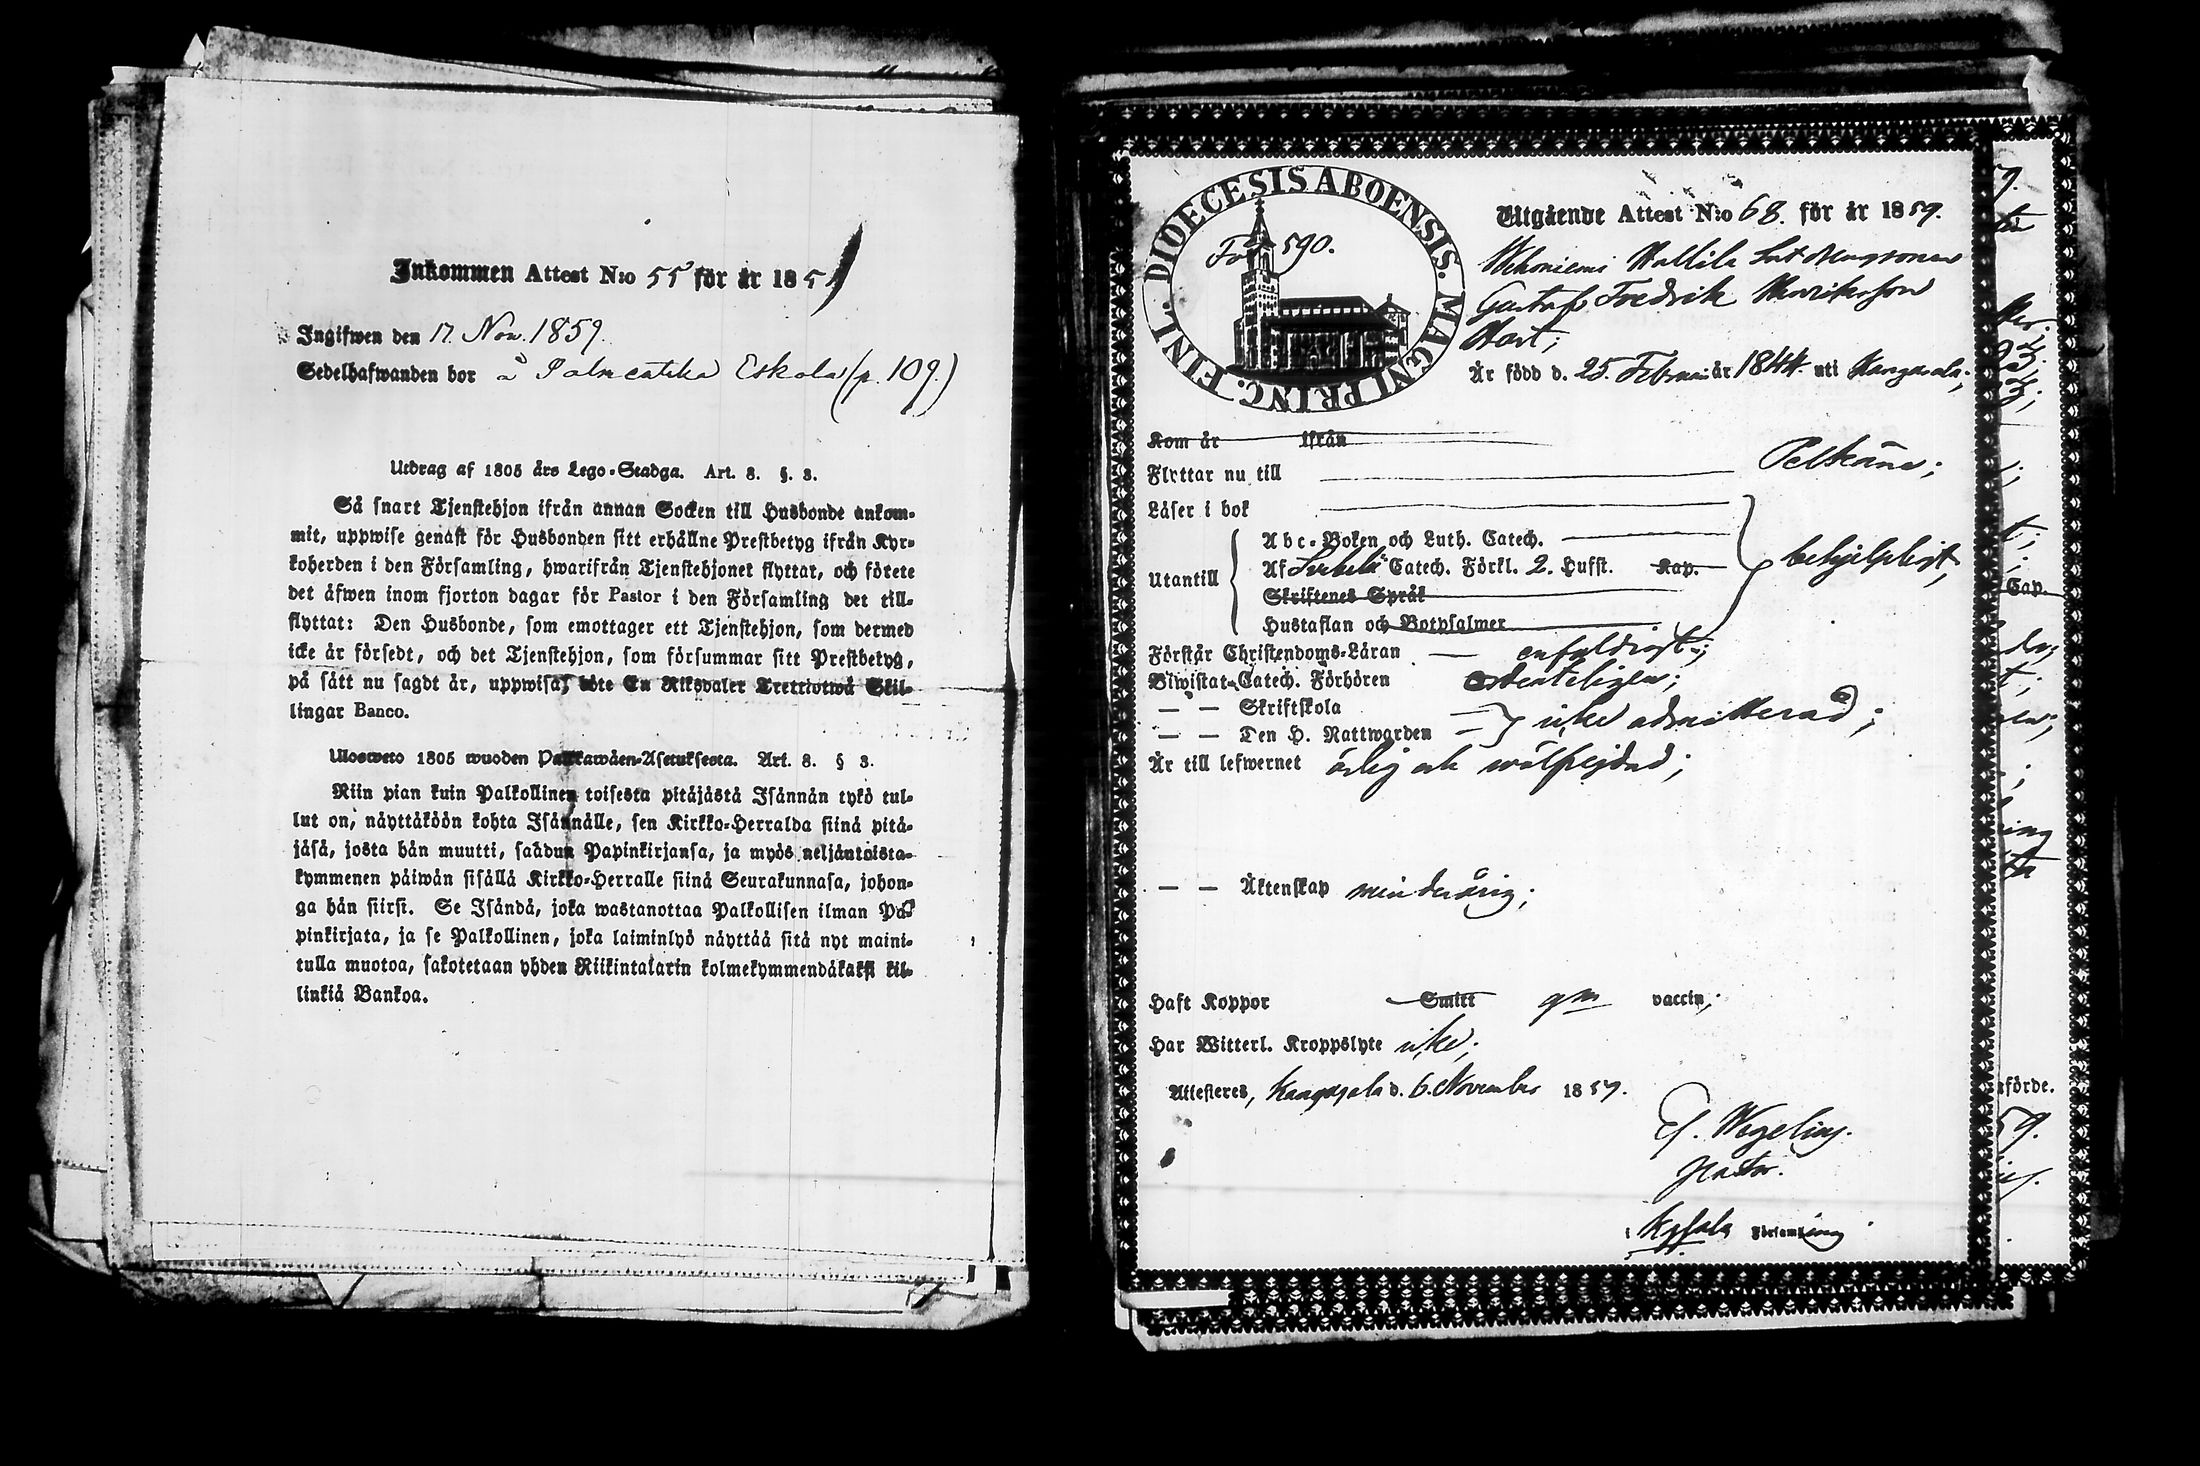 Inkommen Attest N:o 55 för år 1859
Ingifwen den 17. Nov. 1859.
Sedelhafwanden bor å Eskola (p. 109.)
Utdrag af 1805 års Lego-Stadga. Art. 8. §. 3.
Så snart Tjenstehjon ifrån annan Socken till Husbonde ankom-
mit, uppwise genast för Husbonden sitt erhållne Prestbetyg ifrån Kyr-
koherden i den Församling, hwarifrån Tjenstehjonet flyttat, och förete
det äfwen inom fjorton dagar för Pastor i den Församling det till-
flyttat: Den Husbonde, som emottager ett Tjenstehjon, som dermed
icke är försedt, och det Tjenstehjon, som försummar sitt Prestbetyg,
på sätt nu sagdt är, uppwisa, böte En Riksdaler Trettiotwå Skil-
lingar Banco.
Ulosweto 1805 wuoden Palkkawäen-Asetuksesta. Art. 8. § 3.
Niin pian kuin Palkollinen toisesta pitäjästä Isännän tykö tul-
lut on, näyttäköön kohta Isännälle, sen Kirkko-Herralda siinä pitä-
jäsä, josta hän muutti, saadun Papinkirjansa, ja myös neljäntoista-
kymmenen päiwän sisällä Kirkko-Herralle siinä Seurakunnasa, johon-
ga hän siirsi. Se Isändä, joka wastanottaa Palkollisen ilman Pa-
pinkirjata, ja se Palkollinen, joka laiminlyö näyttää sitä nyt maini-
tulla muotoa, sakotetaan yhden Riikintalarin kolmekymmendäkaksi kil-
linkiä Bankoa.
DIOECESIS ABOENSIS. MAGNI PRINC. FINL.
Fol 590.
Utgående Attest N:o 68. för år 1859.
Wehoniemi Mattila
Gustaf Fredrik Henriksson
Är född d. 25. Februari år 1844. uti Kangasala;
Kom år ifrån
Flyttar nu till Pelkäne;
Läser i bok
Abc-Boken och Luth. Catech.
Utantill Af Catech. Förkl. 2. Hufst. Kap. behjelpligt,
Skriftenes Språk
Hustaflan och Botpsalmer
Förstår Christendoms-Läran — enfaldigt;
Biwistat Catech. Förhören ordenteligen;
— — Skriftskola
— — Den H. Nattwarden — icke admitterad;
Är till lefwernet ärlig och wälfrejdad;
— — Äktenskap minderårig;
Haft Koppor Smitt gm vaccin;
Har Witterl. Kroppslyte icke;
Attesteres, Kangasala d. 6. November 1859.
Wegelius.
Pastor.
Kgsala Församling